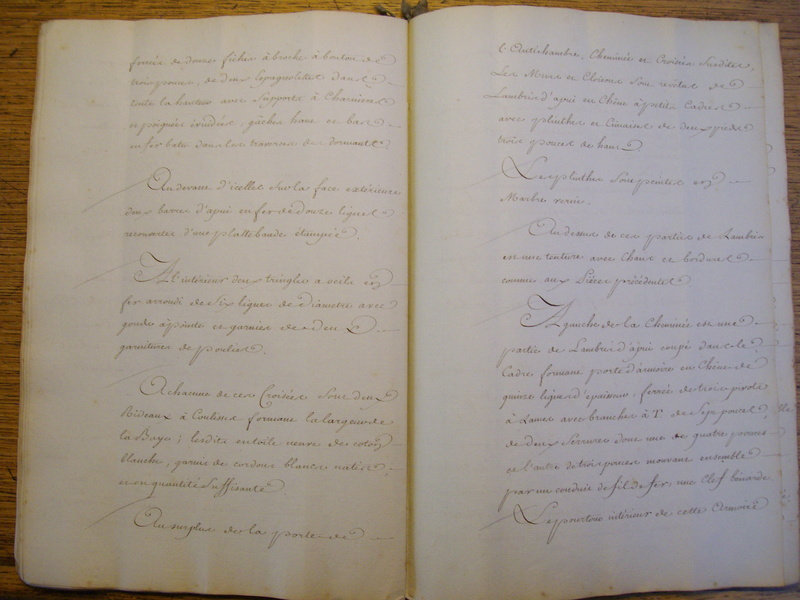 ferrée de douze fiches à broche à bouton de
trois pouces, de deux Espagnolettes dans
toute la hauteur avec supports à Charnières
et poignées évuidées, gâches haut et bas
en fer batu dans les traverses de dormants.
Au devant d'icelles sur la face extérieure
deux barres d'apui en fer de douze lignes
recouvertes d'une platte bande étampée.
A l'intérieur deux tringles a voile en
fer arrondi de six lignes de Diamètre avec
gonds à pointes et garnies de deux
garnitures de poulies.
A chacune de ces Croisées sont deux
Rideaux à Coulisse formant la largeur de
la Baye; lesdits en toile neuve de coton
blanche, garnis de cordons blancs
et en quantité Suffisante
Au surplus de la porte de
l'Antichambre, Cheminée et Croisées Susdites,
Les Murs et Cloisons sont revêtus de
Lambris d'apui en Chêne à petits Cadres
avec plinthes et Cimaises de deux pieds
trois pouces de haut.
Les plinthes sont peintes en
Marbre verni.
Au dessus de ces parties de Lambris
est une tenture avec et bordures
comme aux Pièces précédentes
A gauche de la Cheminée est une
partie de Lambris d'apui coupé dans le
Cadre formant porte d'armoire en Chêne de
quinze lignes d'épaisseur, ferrée de trois pivots
à Lames avec branches à T. de Sept pouces
de deux Serrures dont une de quatre pouces
et l'autre de trois pouces mouvant ensemble
par un conduit de fil de fer, une Clef bénarde
Le pourtour intérieur de cette Armoire